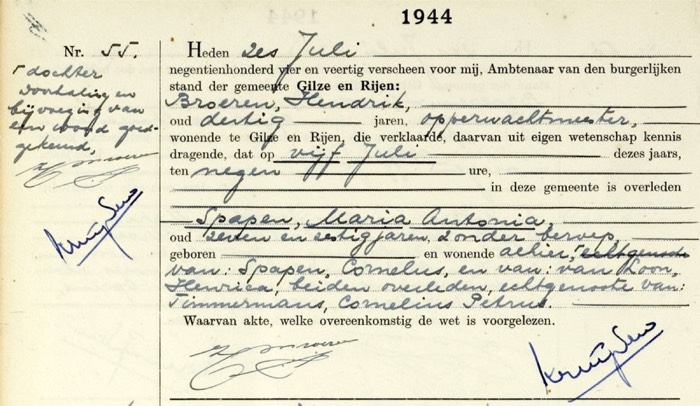 1944
Nr. 55.
Heden zes Juli
negentienhonderd vier en veertig verscheen voor mij, Ambtenaar van den burgerlijken
stand der gemeente Gilze en Rijen:
Broeren, Hendrik,
oud dertig jaren, opperwachtmeester,
wonende te Gilze en Rijen, die verklaarde, daarvan uit eigen wetenschap kennis
dragende, dat op vijf Juli dezes jaars,
ten negen ure,
in deze gemeente is overleden
Spapen, Maria Antonia,
oud zeven en zestig jaren, zonder beroep,
geboren en wonende alhier, echtgenoote
van: Spapen, Cornelus, en van: van Loon,
Henrica, beiden overleden, echtgenoote van:
Timmermans, Cornelius Petrus.
Waarvan akte, welke overeenkomstig de wet is voorgelezen.
dochter
doorhaling en
bijvoeging van
een woord goed-
gekeurd,